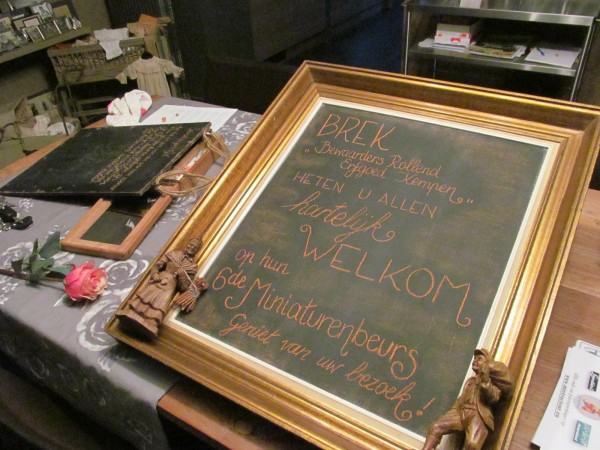 BREK
„Bewaarders Rollend
Erfgoed Kempen"
HETEN U ALLEN
hartelijk
WELKOM
op hun
6de Miniaturenbeurs
Geniet van uw bezoek!